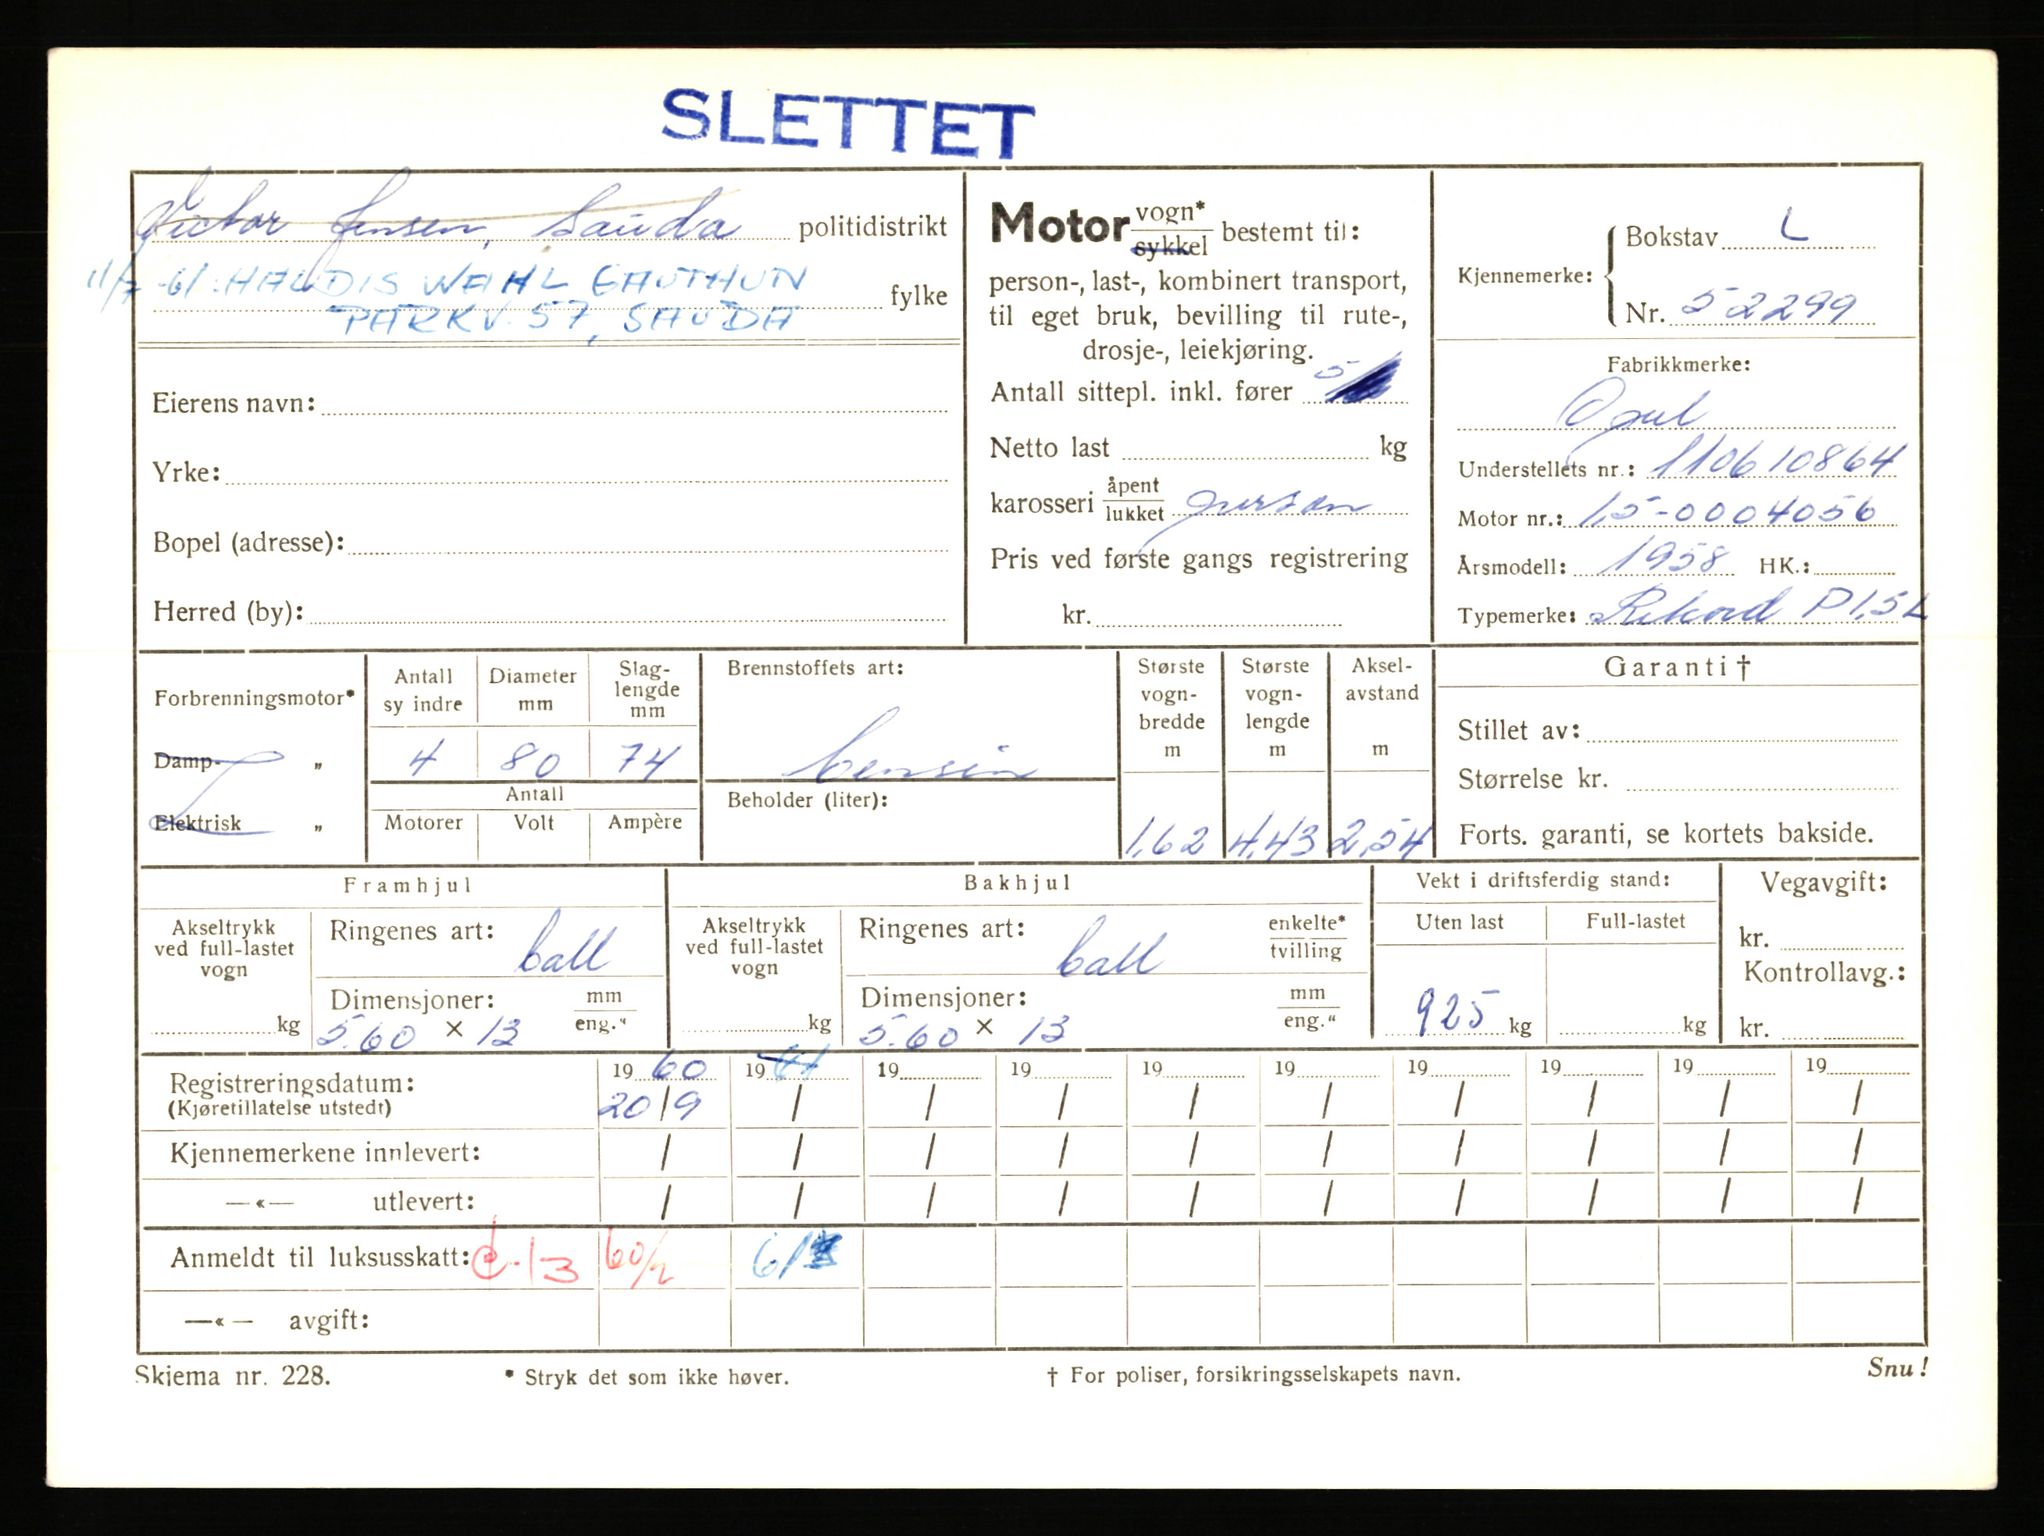 SLETTET
Victor Jensen, Sauda politidistrikt
11/7-61: HALDIS WAHL GAUTHUN fylke
PARKV. 57, SAUDA
Eierens navn:
Yrke:
Bopel (adresse):
Herred (by):
Motor vogn* sykkel bestemt til:
person-, last-, kombinert transport,
til eget bruk, bevilling til rute-,
drosje-, leiekjøring.
Antall sittepl. inkl. fører 5
Netto last kg
karosseri åpent lukket person
Pris ved første gangs registrering
kr.
Kjennemerke:
Bokstav L
Nr. 52299
Fabrikkmerke:
Opel
Understellets nr.: 110610864
Motor nr.: 1,5-0004056
Årsmodell: 1958 HK.:
Typemerke: Rekord P 1,5 L
Forbrenningsmotor*
Damp- „
Elektrisk „
Antall sy indre
Diameter mm
Slag-lengde mm
4 80 74
Antall
Motorer Volt Ampère
Brennstoffets art:
bensin
Beholder (liter):
Største vogn-bredde m
Største vogn-lengde m
Aksel-avstand m
1,62 4,43 2,54
Garanti †
Stillet av:
Størrelse kr.
Forts. garanti, se kortets bakside.
Framhjul
Akseltrykk ved full-lastet vogn
kg
Ringenes art: ball
Dimensjoner: mm eng."
5.60 × 13
Bakhjul
Akseltrykk ved full-lastet vogn
kg
Ringenes art: ball enkelte* tvilling
Dimensjoner: mm eng."
5.60 × 13
Vekt i driftsferdig stand:
Uten last Full-lastet
925 kg kg
Vegavgift:
kr.
Kontrollavg.:
kr.
Registreringsdatum: 19 60 19 19 19 19 19 19 19 19 19
(Kjøretillatelse utstedt) 20/9 / / / / / / / / /
Kjennemerkene innlevert: / / / / / / / / / /
—«— utlevert: / / / / / / / / / /
Anmeldt til luksusskatt: 13 60/2 61/
—«— avgift:
Skjema nr. 228. * Stryk det som ikke høver. † For poliser, forsikringsselskapets navn. Snu!